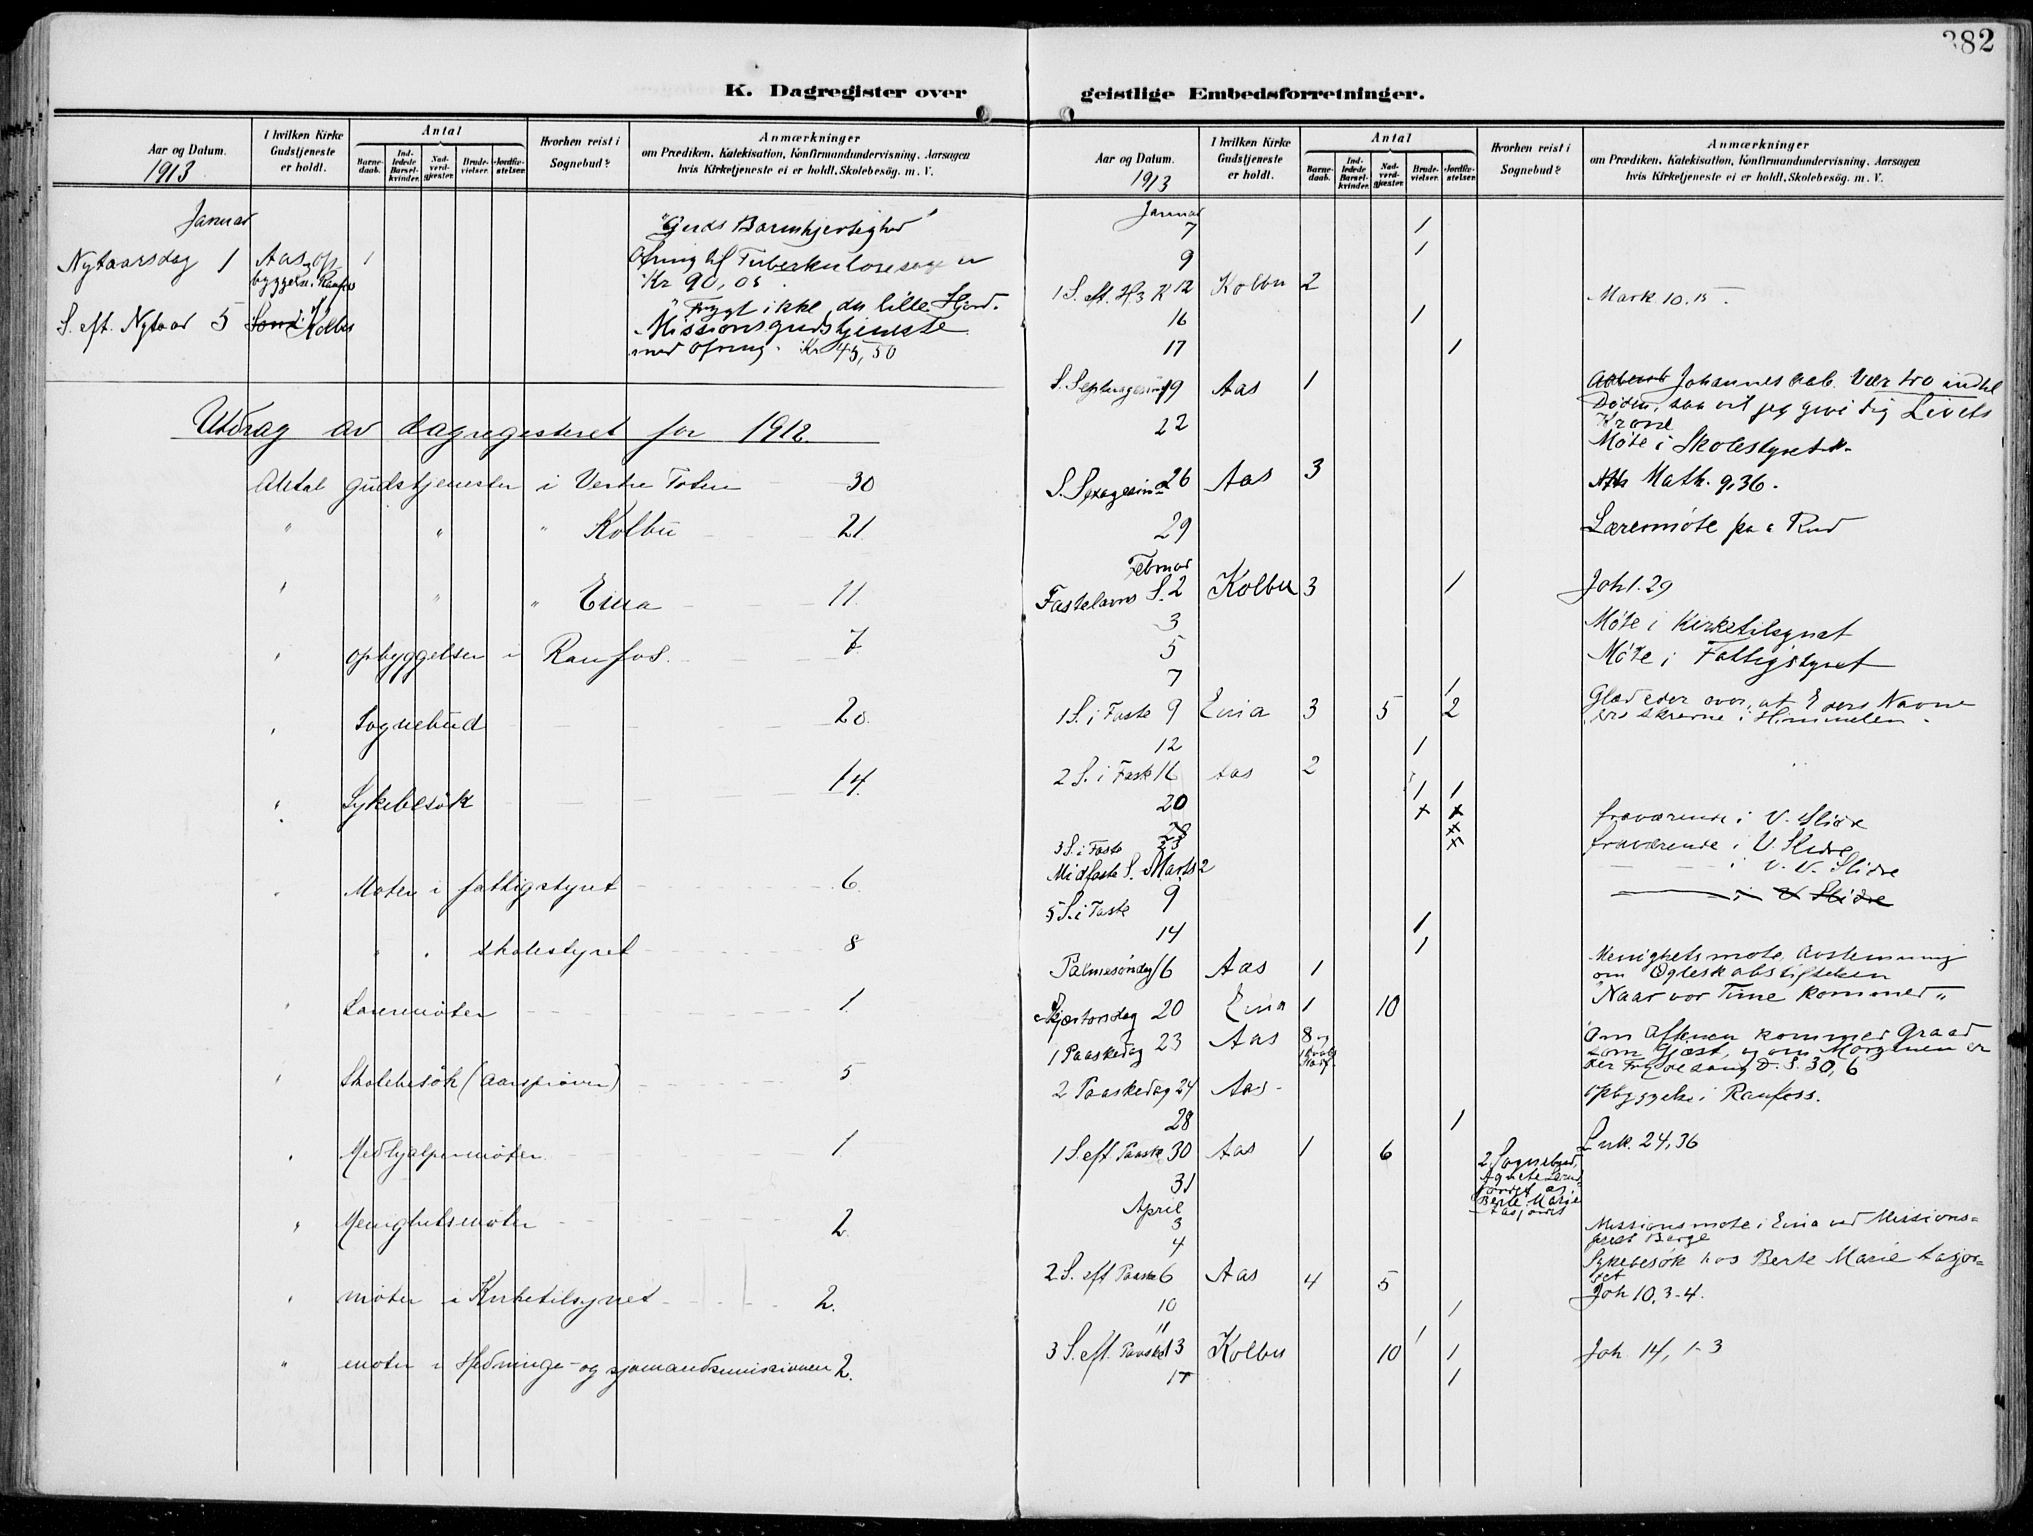 382
K. Dagregister over
Aar og Datum.
1913
I hvilken Kirke Gudstjeneste er holdt.
Antal
Barne-daab.
Ind-ledede Barsel-kvinder.
Nad-verd-gjester.
Brude-vielser.
Jordfæ-stelser.
Hvorhen reist i Sognebud?
Anmærkninger
om Prædiken, Katekisation, Konfirmandundervisning, Aarsagen
hvis Kirketjeneste ei er holdt, Skolebesøg, m. V.
Januar "Guds Barmhjertighed"
Nytaarsdag 1 Aas, op 1 Ofring til Tuberkulosesagen
byggelse. Raufos Kr 90,05
"Frygt ikke, du lille Hjord.
S. eft. Nytaar 5 Kolbu Missionsgudstjeneste
med ofring. Kr. 45,50
Utdrag av dagregisteret for 1912
Antal gudstjenester i Vestre Toten 30
" " " Kolbu 21
" " " Eina 11.
" opbyggelser i Raufos. 7.
" Sognebud 20.
" Sykebesøk 14.
" Møter i fattigstyret 6.
" " skolestyret 8
" Lærermøter 1.
" Skolebesøk (Aarsprøver) 5
" Medhjælpermøter 1
" Menighetsmøter 2.
" møter i Kirketilsynet 2.
" møter i Hedninge- og sjømandsmissionen 2.
geistlige Embedsforretninger.
Aar og Datum.
1913
I hvilken Kirke Gudstjeneste er holdt.
Antal
Barne-daab.
Ind-ledede Barsel-kvinder.
Nad-verd-gjester.
Brude-vielser.
Jordfæ-stelser.
Hvorhen reist i Sognebud?
Anmærkninger
om Prædiken, Katekisation, Konfirmandundervisning, Aarsagen
hvis Kirketjeneste ei er holdt, Skolebesøg, m. V.
Januar
7 1
9 1
1 S. eft. H3K 12 Kolbu 2 Mark. 10.15
16 1
17 1
S. Septuagesima 19 Aas 1 Johannes aab. Vær tro indtil
Døden, saa vil jeg give dig Livets
Krone
22 Møte i Skolestyret
S. Sexagesima 26 Aas 3 Math. 9,36.
29 Læremøte paa Rud
Februar
Fastelavns S. 2 Kolbu 3 1 Joh 1.29
3 Møte i Kirketilsynet
5 Møte i Fattigstyret
7 1
1 S. i Faste 9 Eina 3 5 2 Glæd eder over, at Eders Navne
ere skrevne i Himmelen
12 1
2 S. i Faste 16 Aas 2
20 1 1
fraværende i V. Slidre
3 S. i Faste 23 fraværende i V. Slidre
Midfaste S. Marts 2 i V. Slidre
5 S. i Faste 9 i V Slidre
14 1
1
Palmesøndag 16 Aas 1 Menighetsmøte, Avstemning
om
Skjærtorsdag 20 Eina 1 10 "Naar vor Time kommer"
1 Paaskedag 23 Aas 8 og Om Aftenen kommer Graad
som Gjæst, og om Morgenen er
der Frydesang D. S. 30,6
2 Paaskedag 24 Aas Opbyggelse i Raufoss.
28 1
1 S. eft Paaske 30 Aas 1 6 Luk. 24,36
31 2 Sognebud,
Berte Marie
April
3 Missionsmøte i Eina ved Missions-
prest Borge
4 Sykebesøk hos Berte Marie Aasjor-
det
2 S. eft Paaske 6 Aas 4 5 Joh 10,3-4.
10 1
11 1
3 S. eft. Paaske 13 Kolbu 10 1 Joh. 14, 1-3
17 1